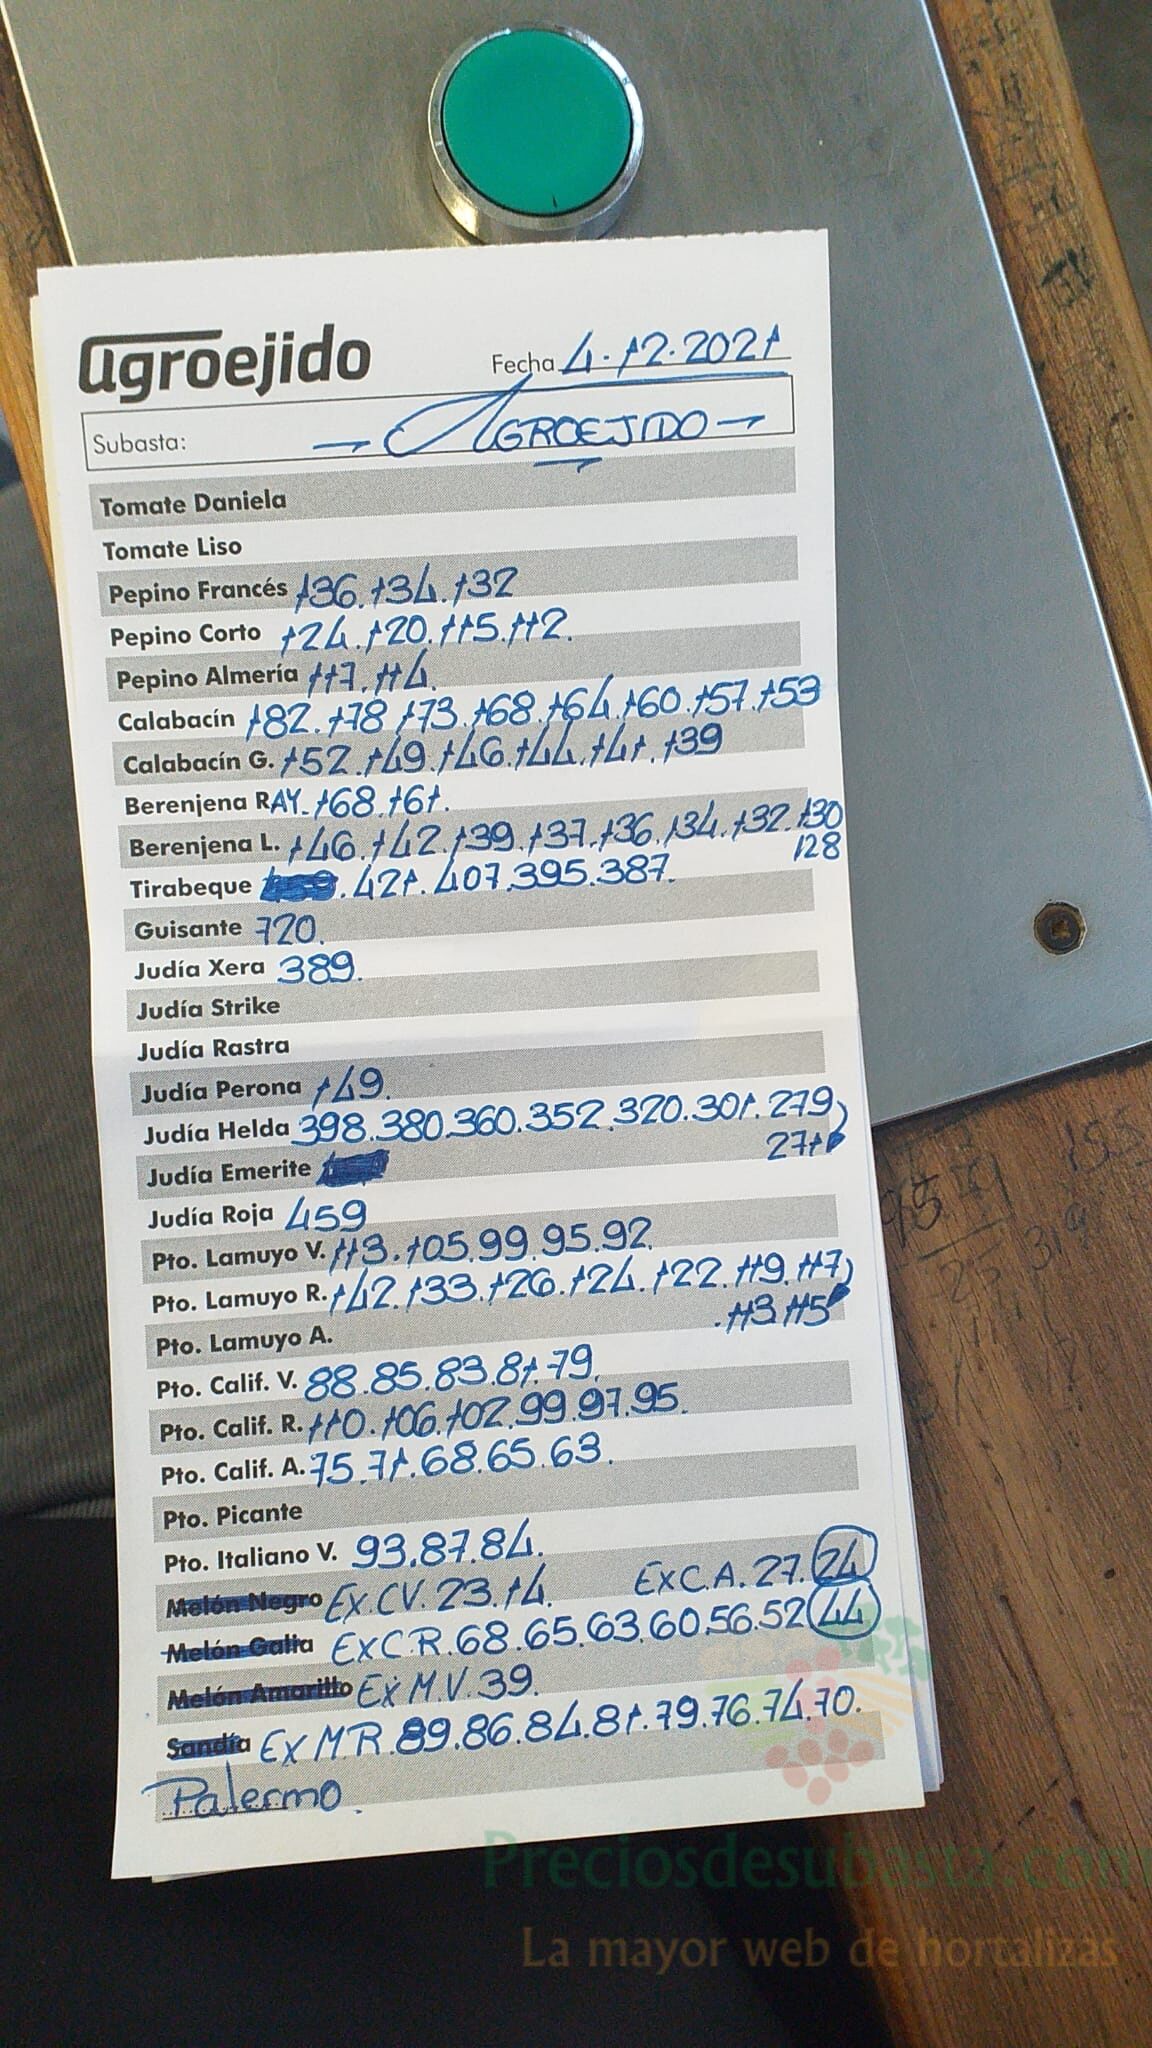 agroejido
Fecha 4.12.2021
Subasta: AGROEJIDO
Tomate Daniela
Tomate Liso
Pepino Francés 136.134.132
Pepino Corto 124.120.115.112.
Pepino Almería 117.114.
Calabacín 182.178.173.168.164.160.157.153
Calabacín G. 152.149.146.144.141.139
Berenjena RAY.168.161.
Berenjena L. 146.142.139.137.136.134.132.130
128
Tirabeque .421.407.395.387.
Guisante 720.
Judía Xera 389.
Judía Strike
Judía Rastra
Judía Perona 149.
Judía Helda 398.380.360.352.320.301.279
271
Judía Emerite
Judía Roja 459
Pto. Lamuyo V. 113.105.99.95.92.
Pto. Lamuyo R. 142.133.126.124.122.119.117
.113.115
Pto. Lamuyo A.
Pto. Calif. V. 88.85.83.81.79.
Pto. Calif. R. 110.106.102.99.97.95.
Pto. Calif. A. 75.71.68.65.63.
Pto. Picante
Pto. Italiano V. 93.87.84.
Melón Negro Ex.CV.23.14. ExC.A.27.24
Melón Galia ExCR.68.65.63.60.56.52 44
Melón Amarillo Ex M.V.39.
Sandía Ex MR.89.86.84.81.79.76.74.70.
Palermo.
Preciosdesubasta.com
La mayor web de hortalizas